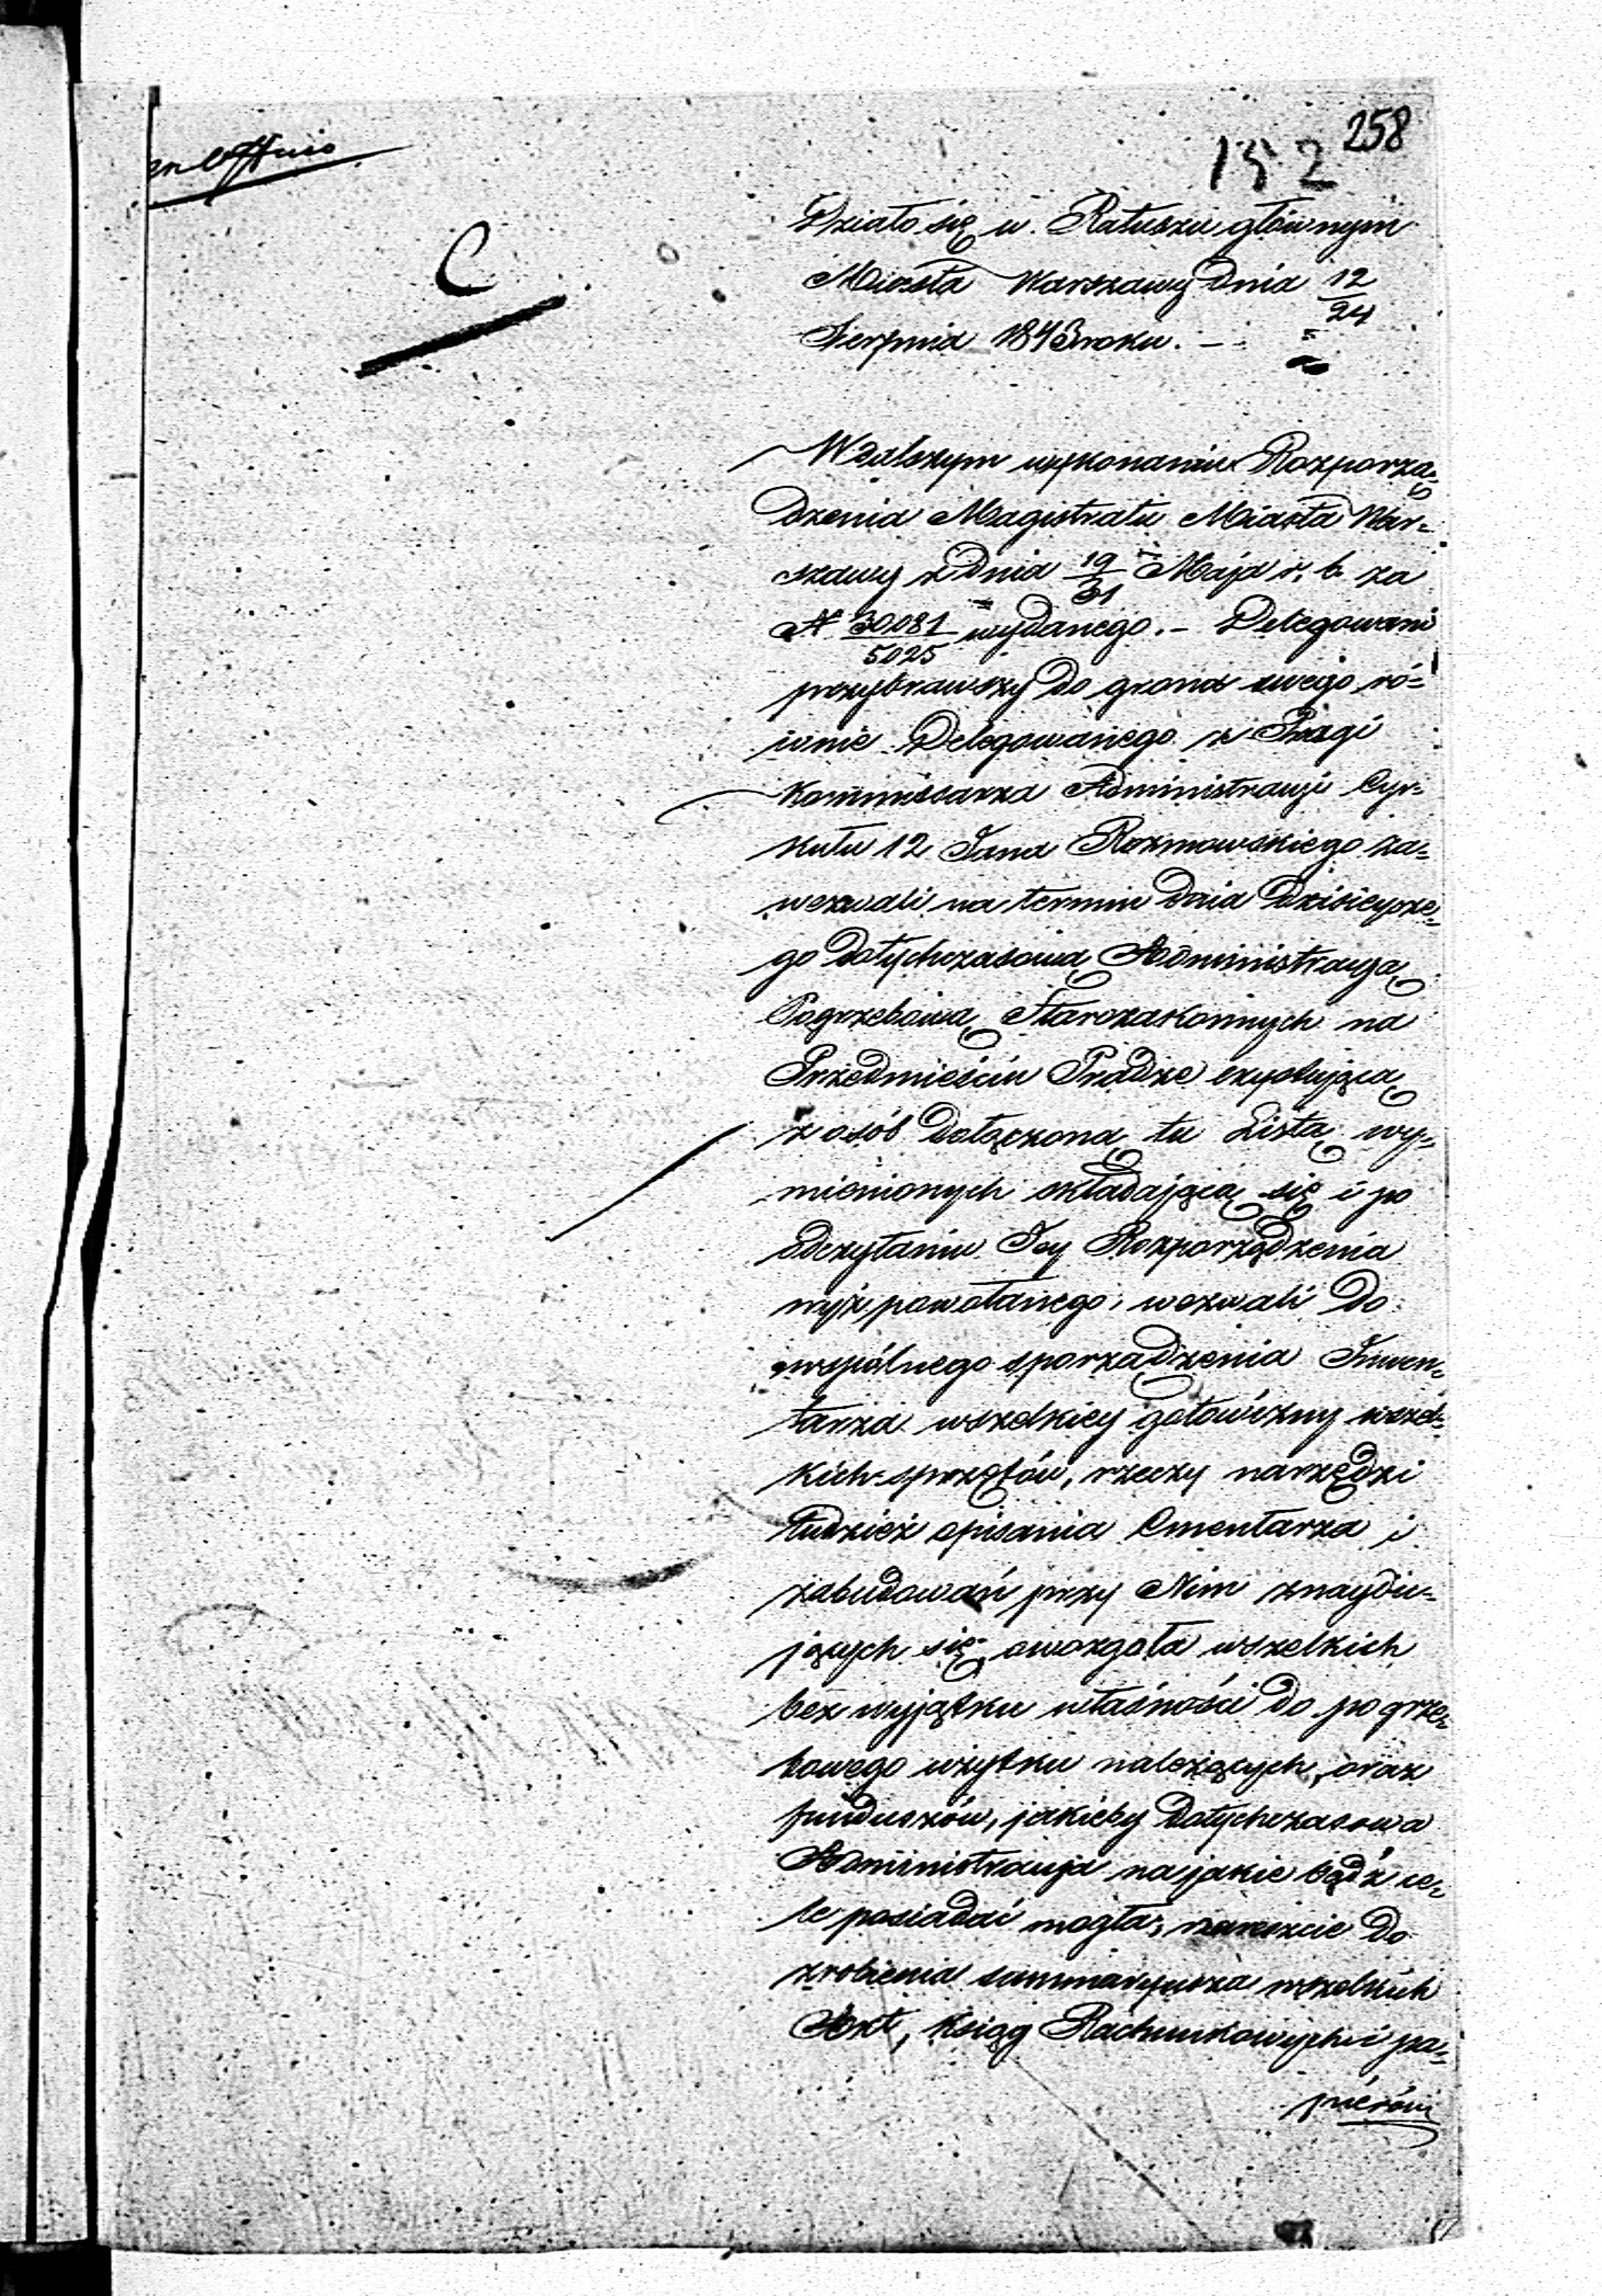 ex Officio
258
152
C
Działo się w Ratuszu głównym
Miasta Warszawy dnia 12/24
Sierpnia 1843 roku. —
W dalszym wykonaniu Rozporzą=
dzenia Magistratu Miasta War=
szawy z dnia 19/31 Maja r. b. za
N 30081/5025 wydanego. — Delegowani
przybrawszy do grona swego ró=
wnie Delegowanego z Pragi
Kommissarza Administracyi Cyr=
kułu 12 Jana Rozmowskiego za=
wezwali na termin dnia dzisieysze=
go dotychczasową Administracyą
Pogrzebową Starozakonnych na
Przedmieściu Pradze exystującą
z osób dołączoną tu Listą wy=
mienionych składającą się i po
odczytaniu Jey Rozporządzenia
wyż powołanego, wezwali do
wspólnego sporządzenia Inwen=
tarza wszelkiey gotowizny wszel=
kich sprzętów, rzeczy narzędzi
tudzież opisania Cmentarza i
zabudowań przy Nim znaydu=
jących się, owozgoła wszelkich
bez wyjątku własności do pogrze=
bowego użytku należących, oraz
funduszów, jakieby dotychczasowa
Administracyja na jakie bądź ce=
le posiadać mogła, nareszcie do
zrobienia summaryusza wszelkich
Akt, ksiąg Rachunkowych i pa=
pierów